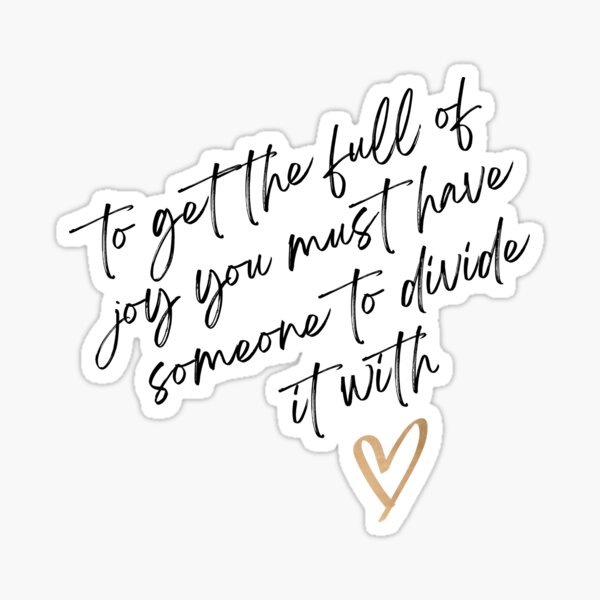 to get the full of
joy you must have
someone to divide
it with